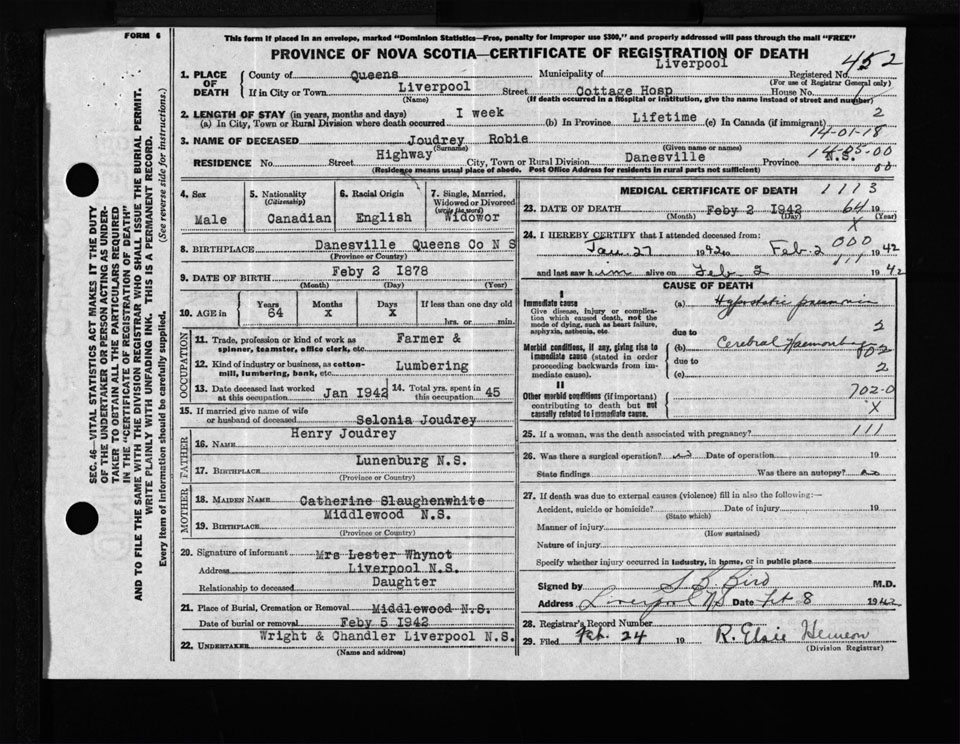 FORM 6
This form if placed in an envelope, marked "Dominion Statistics—Free, penalty for improper use $300," and properly addressed will pass through the mail "FREE"
PROVINCE OF NOVA SCOTIA—CERTIFICATE OF REGISTRATION OF DEATH
452
1. PLACE OF DEATH
County of Queens Municipality of Liverpool Registered No.
(For use of Registrar General only)
If in City or Town Liverpool Street Cottage Hosp House No.
(Name) (If death occurred in a hospital or institution, give the name instead of street and number)
2. LENGTH OF STAY (in years, months and days)
(a) In City, Town or Rural Division where death occurred I week (b) In Province Lifetime (c) In Canada (if immigrant) 2
14-01-18
3. NAME OF DECEASED Joudrey Robie
(Surname) (Given name or names)
14-05-00
RESIDENCE No. Street Highway City, Town or Rural Division Danesville Province N.S.
(Residence means usual place of abode. Post Office Address for residents in rural parts not sufficient)
00
4. Sex Male
5. Nationality (Citizenship) Canadian
6. Racial Origin English
7. Single, Married, Widowed or Divorced (write the word) Widowor
8. BIRTHPLACE Danesville Queens Co N S
(Province or Country)
9. DATE OF BIRTH Feby 2 I878
(Month) (Day) (Year)
10. AGE in Years 64 Months X Days X If less than one day old hrs. or min.
OCCUPATION
11. Trade, profession or kind of work as spinner, teamster, office clerk, etc. Farmer &
12. Kind of industry or business, as cotton-mill, lumbering, bank, etc. Lumbering
13. Date deceased last worked at this occupation Jan I942
14. Total yrs. spent in this occupation 45
15. If married give name of wife or husband of deceased Selonia Joudrey
FATHER
16. NAME Henry Joudrey
17. BIRTHPLACE Lunenburg N.S.
(Province or Country)
MOTHER
18. MAIDEN NAME Catherine Slaughenwhite
19. BIRTHPLACE Middlewood N.S.
(Province or Country)
20. Signature of informant Mrs Lester Whynot
Address Liverpool N.S.
Relationship to deceased Daughter
21. Place of Burial, Cremation or Removal Middlewood N.S.
Date of burial or removal Feby 5 I942
22. UNDERTAKER Wright & Chandler Liverpool N.S.
(Name and address)
MEDICAL CERTIFICATE OF DEATH
1113
23. DATE OF DEATH Feby 2 I942 64 19
(Month) (Day) (Year)
X
24. I HEREBY CERTIFY that I attended deceased from:
000
Jan. 27 1942 to Feb. 2 1942
111
and last saw him alive on Feb 2 1942
CAUSE OF DEATH
I
Immediate cause
Give disease, injury or complication which caused death, not the mode of dying, such as heart failure, asphyxia, asthenia, etc.
(a) Hypostatic pneumonia
due to
2
Morbid conditions, if any, giving rise to immediate cause (stated in order proceeding backwards from immediate cause).
(b) Cerebral Haemorrhage
due to
2
(c)
II
Other morbid conditions (if important) contributing to death but not causally related to immediate cause.
702-0
X
25. If a woman, was the death associated with pregnancy? 111
26. Was there a surgical operation? no Date of operation 19
State findings Was there an autopsy? no
27. If death was due to external causes (violence) fill in also the following:—
Accident, suicide or homicide? Date of injury 19
(State which)
Manner of injury
(How sustained)
Nature of injury
Specify whether injury occurred in industry, in home, or in public place
Signed by S B Bird M.D.
Address Liverpool N.S Date Feb 8 1942
28. Registrar's Record Number
29. Filed Feb. 24 19 R. Elsie Hemeon
(Division Registrar)
SEC. 46—VITAL STATISTICS ACT MAKES IT THE DUTY
OF THE UNDERTAKER OR PERSON ACTING AS UNDER-
TAKER TO OBTAIN ALL THE PARTICULARS REQUIRED
IN THE "CERTIFICATE OF REGISTRATION OF DEATH"
AND TO FILE THE SAME WITH THE DIVISION REGISTRAR WHO SHALL ISSUE THE BURIAL PERMIT.
WRITE PLAINLY WITH UNFADING INK. THIS IS A PERMANENT RECORD.
Every item of information should be carefully supplied. (See reverse side for instructions.)